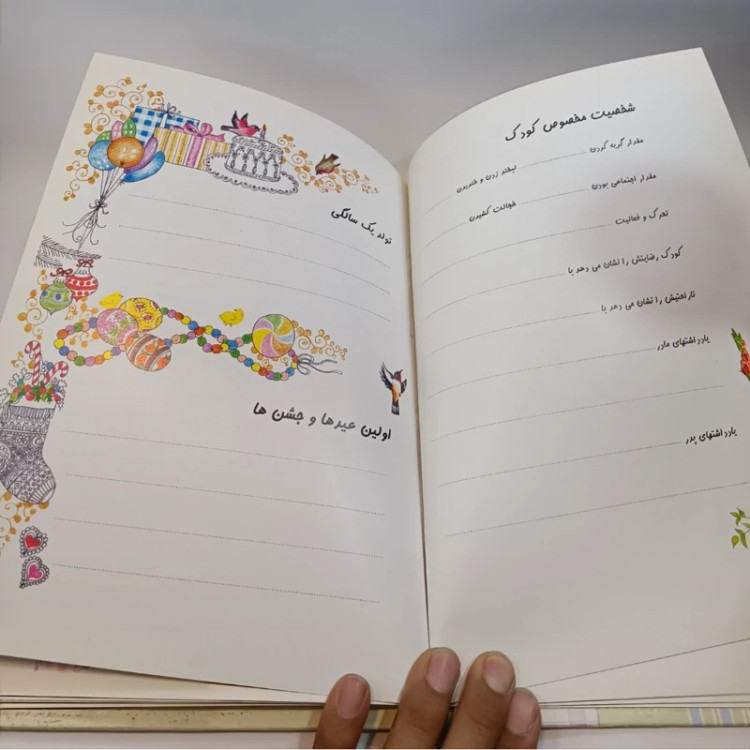 شخصیت مخصوص کودک
مقدار گریه کردن لبخند زدن و خندیدن
مقدار اجتماعی بودن خجالت کشیدن
تحرک و فعالیت
کودک رضایتش را نشان می دهد با
ناراحتیش را نشان می دهد با
یادداشتهای مادر
یادداشتهای پدر
تولد یک سالگی
اولین عیدها و جشن ها